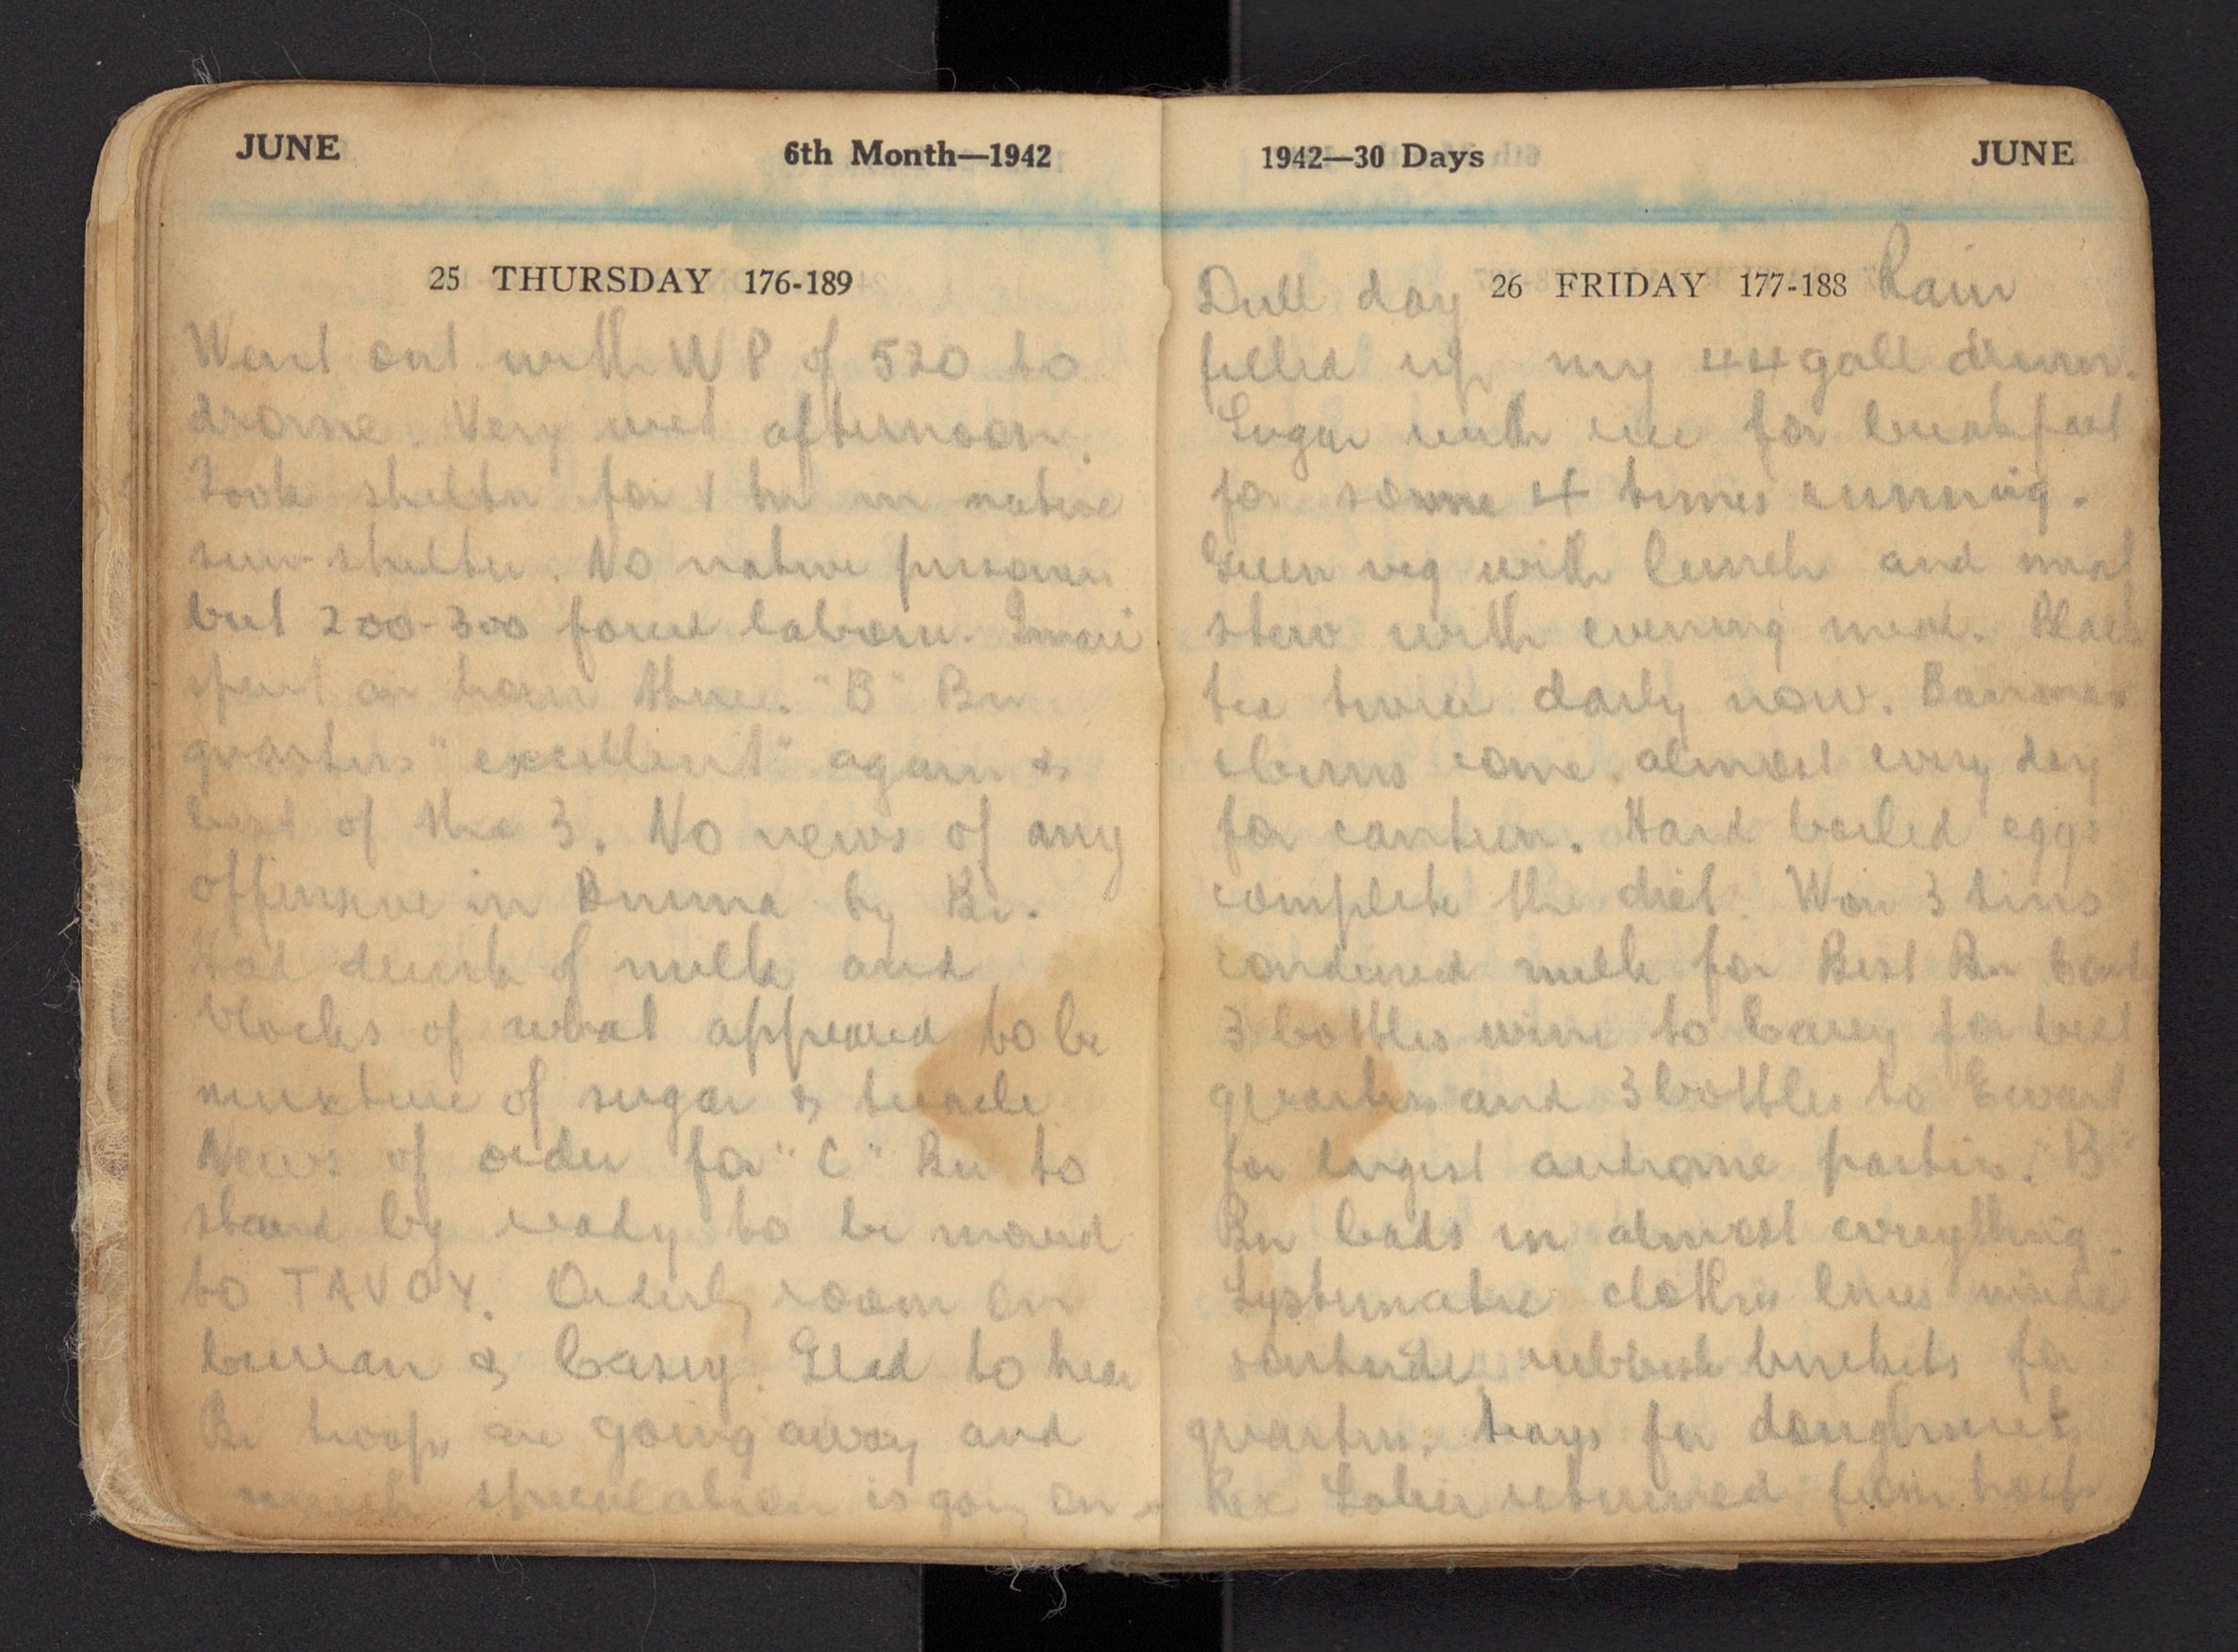 JUNE 6th Month—1942
25 THURSDAY 176-189
Went out with WP of 520 to
drome. Very wet afternoon.
Took shelter for 1 hr in native
sun-shelter. No native prisoners
but 200-300 forced labour. Imai
spent an hour there. "B" Bn
quarters "excellent" again &
best of the 3. No news of any
offensive in Burma by Br.
Had drink of milk and
blocks of what appeared to be
mixture of sugar & treacle
News of order for "C" Bn to
stand by ready to be moved
to TAVOY. Orderly room on
Curran & Casey. Glad to hear
Br troops are going away and
much speculation is going on
1942—30 Days JUNE
Dull day 26 FRIDAY 177-188 Rain
filled up my 44 gall drum.
Sugar with rice for breakfast
for some 4 times running.
Green veg with lunch and meat
stew with evening meal. Black
tea twice daily now. Bananas
come almost every day
for canteen. Hard boiled eggs
complete the diet. Won 3 tins
condensed milk for Best Bn
3 bottles wine to Casey for best
quarters and 3 bottles to Ewart
for largest aerdrome parties. "B"
Bn leads in almost everything.
Systematic clothes lines inside
outside, rubbish buckets for
quarters, trays for doughnuts
Rex returned from hosp